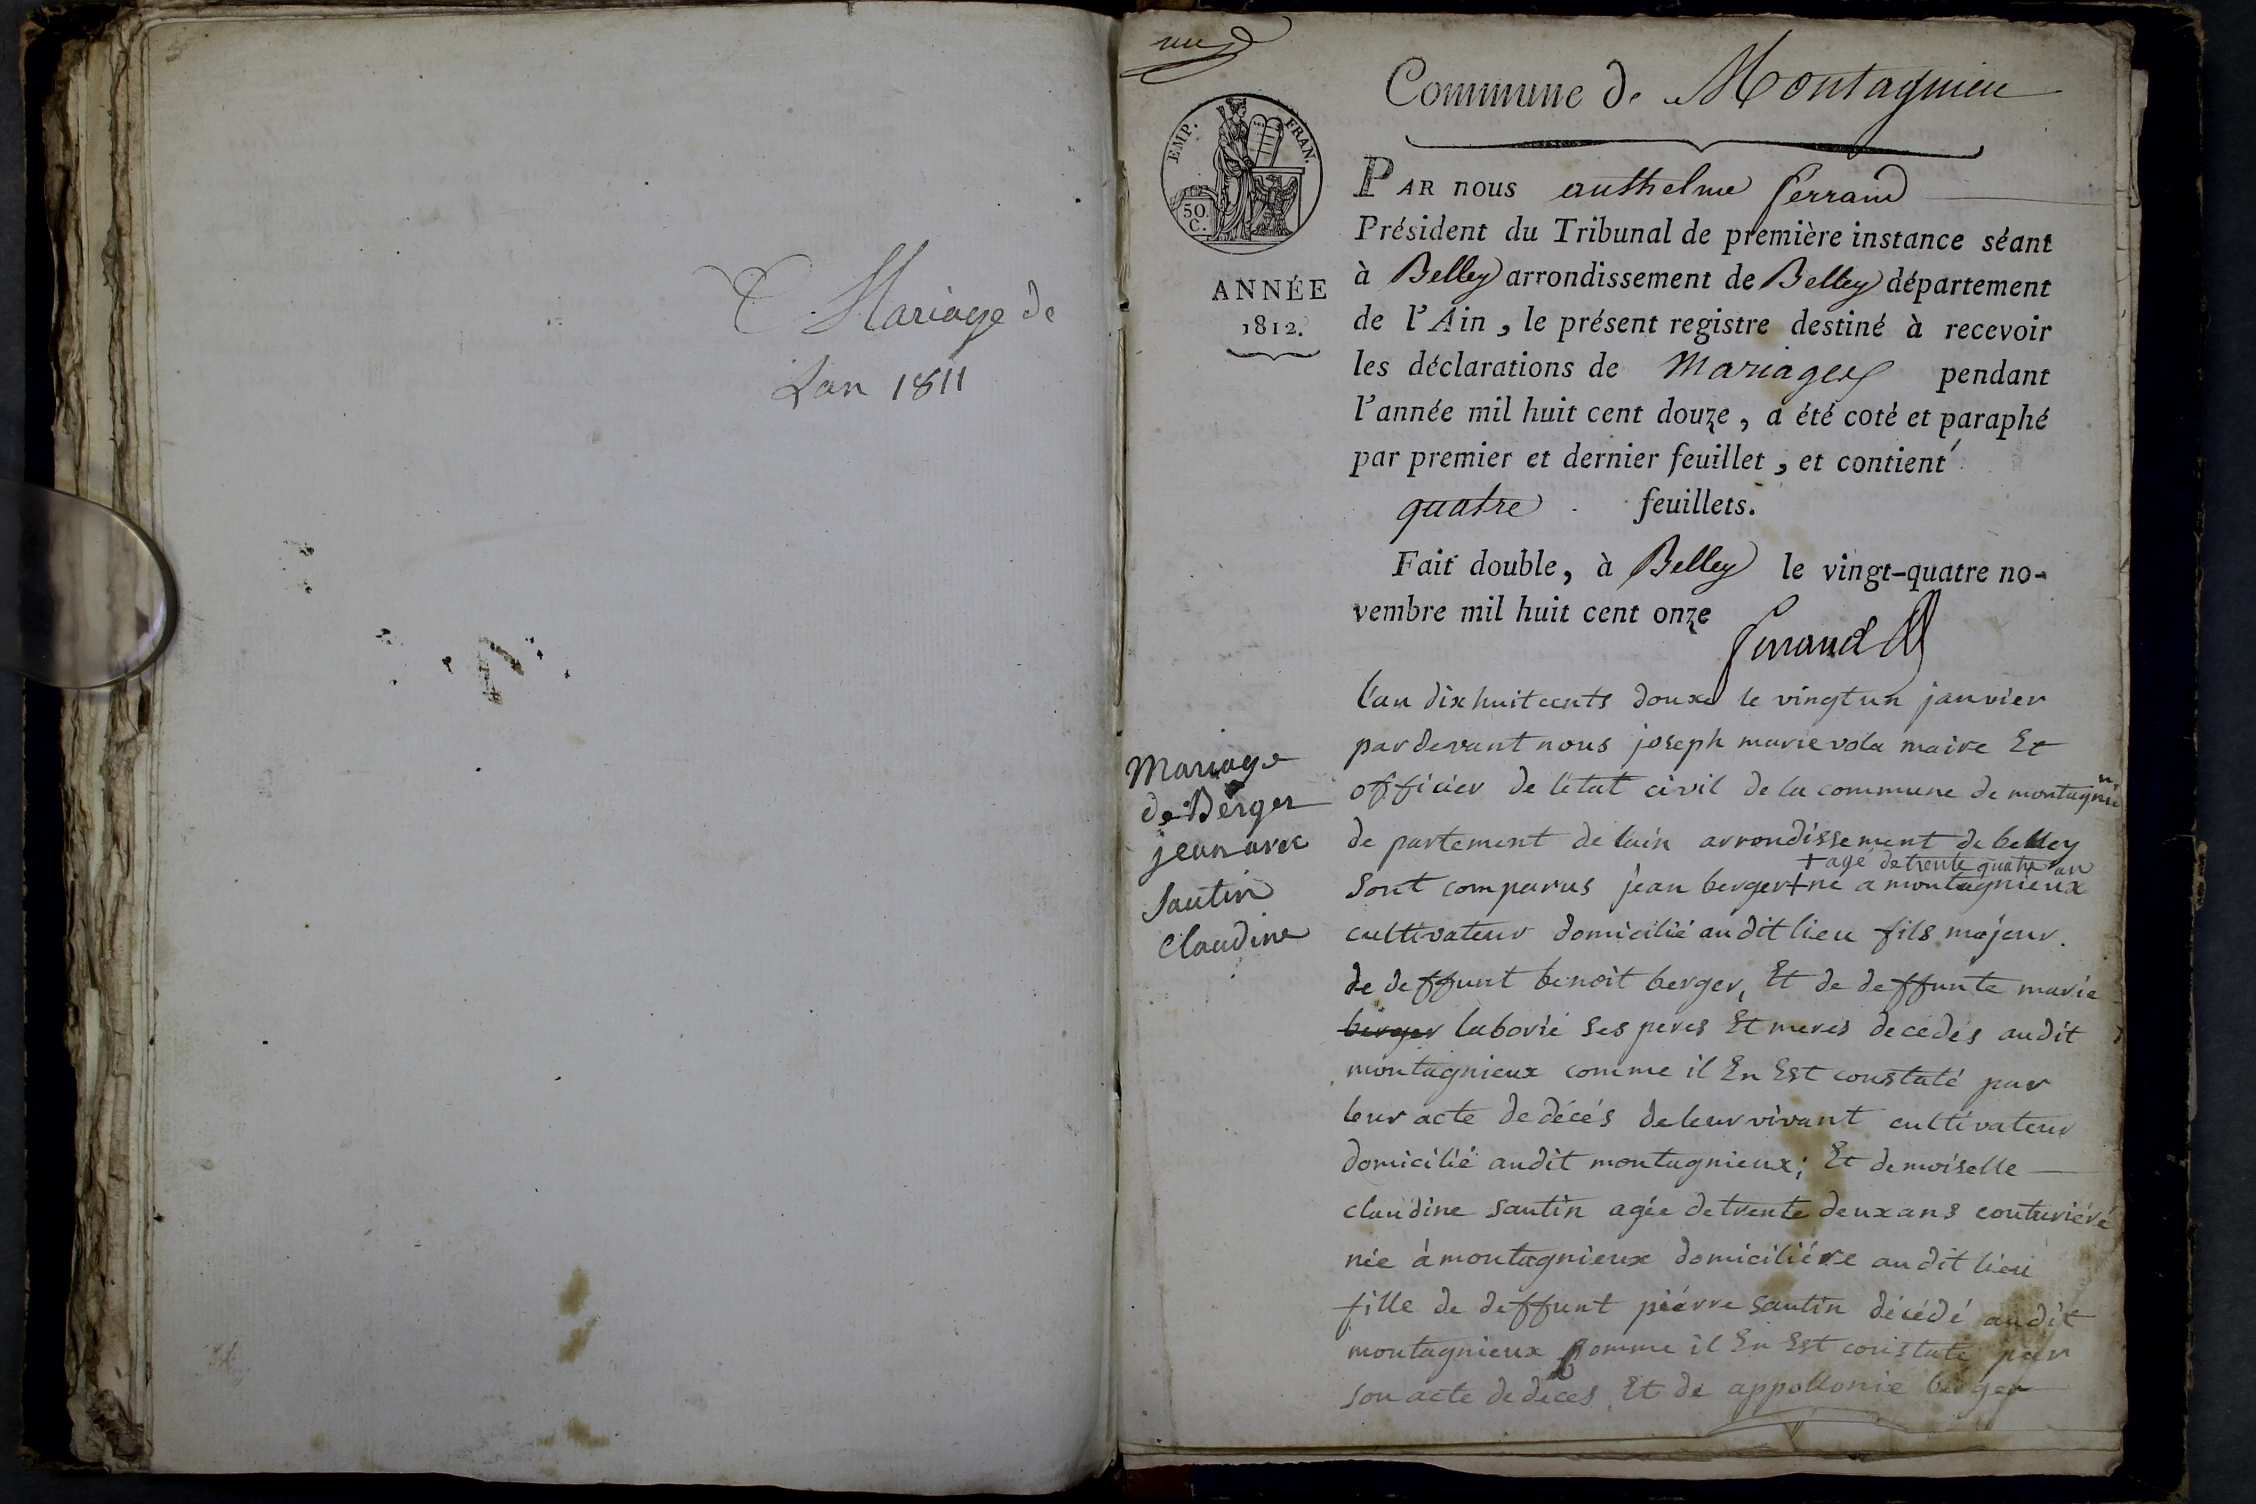 Mariage de
Lan 1811
un
Commune de Montagnieu
EMP. FRAN.
50.
C.
ANNÉE
1812.
PAR nous anthelme ferrand
Président du Tribunal de première instance séant
à Belley arrondissement de Belley département
de l'Ain, le présent registre destiné à recevoir
les déclarations de Mariages pendant
l'année mil huit cent douze, a été coté et paraphé
par premier et dernier feuillet, et contient
quatre feuillets.
Fait double, à Belley le vingt-quatre no-
vembre mil huit cent onze
ferrand
Mariage
de Berger
jean avec
Sautin
Claudine
l'an dixhuitcents douze le vingtun janvier
pardevant nous joseph marie vola maire Et
officier de létat civil de la commune de montagnieu
de partement de lain arrondissement de belley
+ agé de trente quatre an
Sont comparus jean berger + né a montagnieux
cultivateur domicilié audit lieu fils majeur.
de deffunt benoit berger, Et de deffunte marie
berger laborié Ses peres Et meres decedés audit
montagnieux comme il En Est constaté par
leur acte de décés de leur vivant cultivateur
domicilié audit montagnieux; Et demoiselle
claudine Sautin agée de trente deux ans couturiéré
née á montagnieux domiciliére audit lieu
fille de deffunt piérre Sautin décédé audit
montagnieux comme il En Est constaté par
son acte de deces Et de appollonie berger